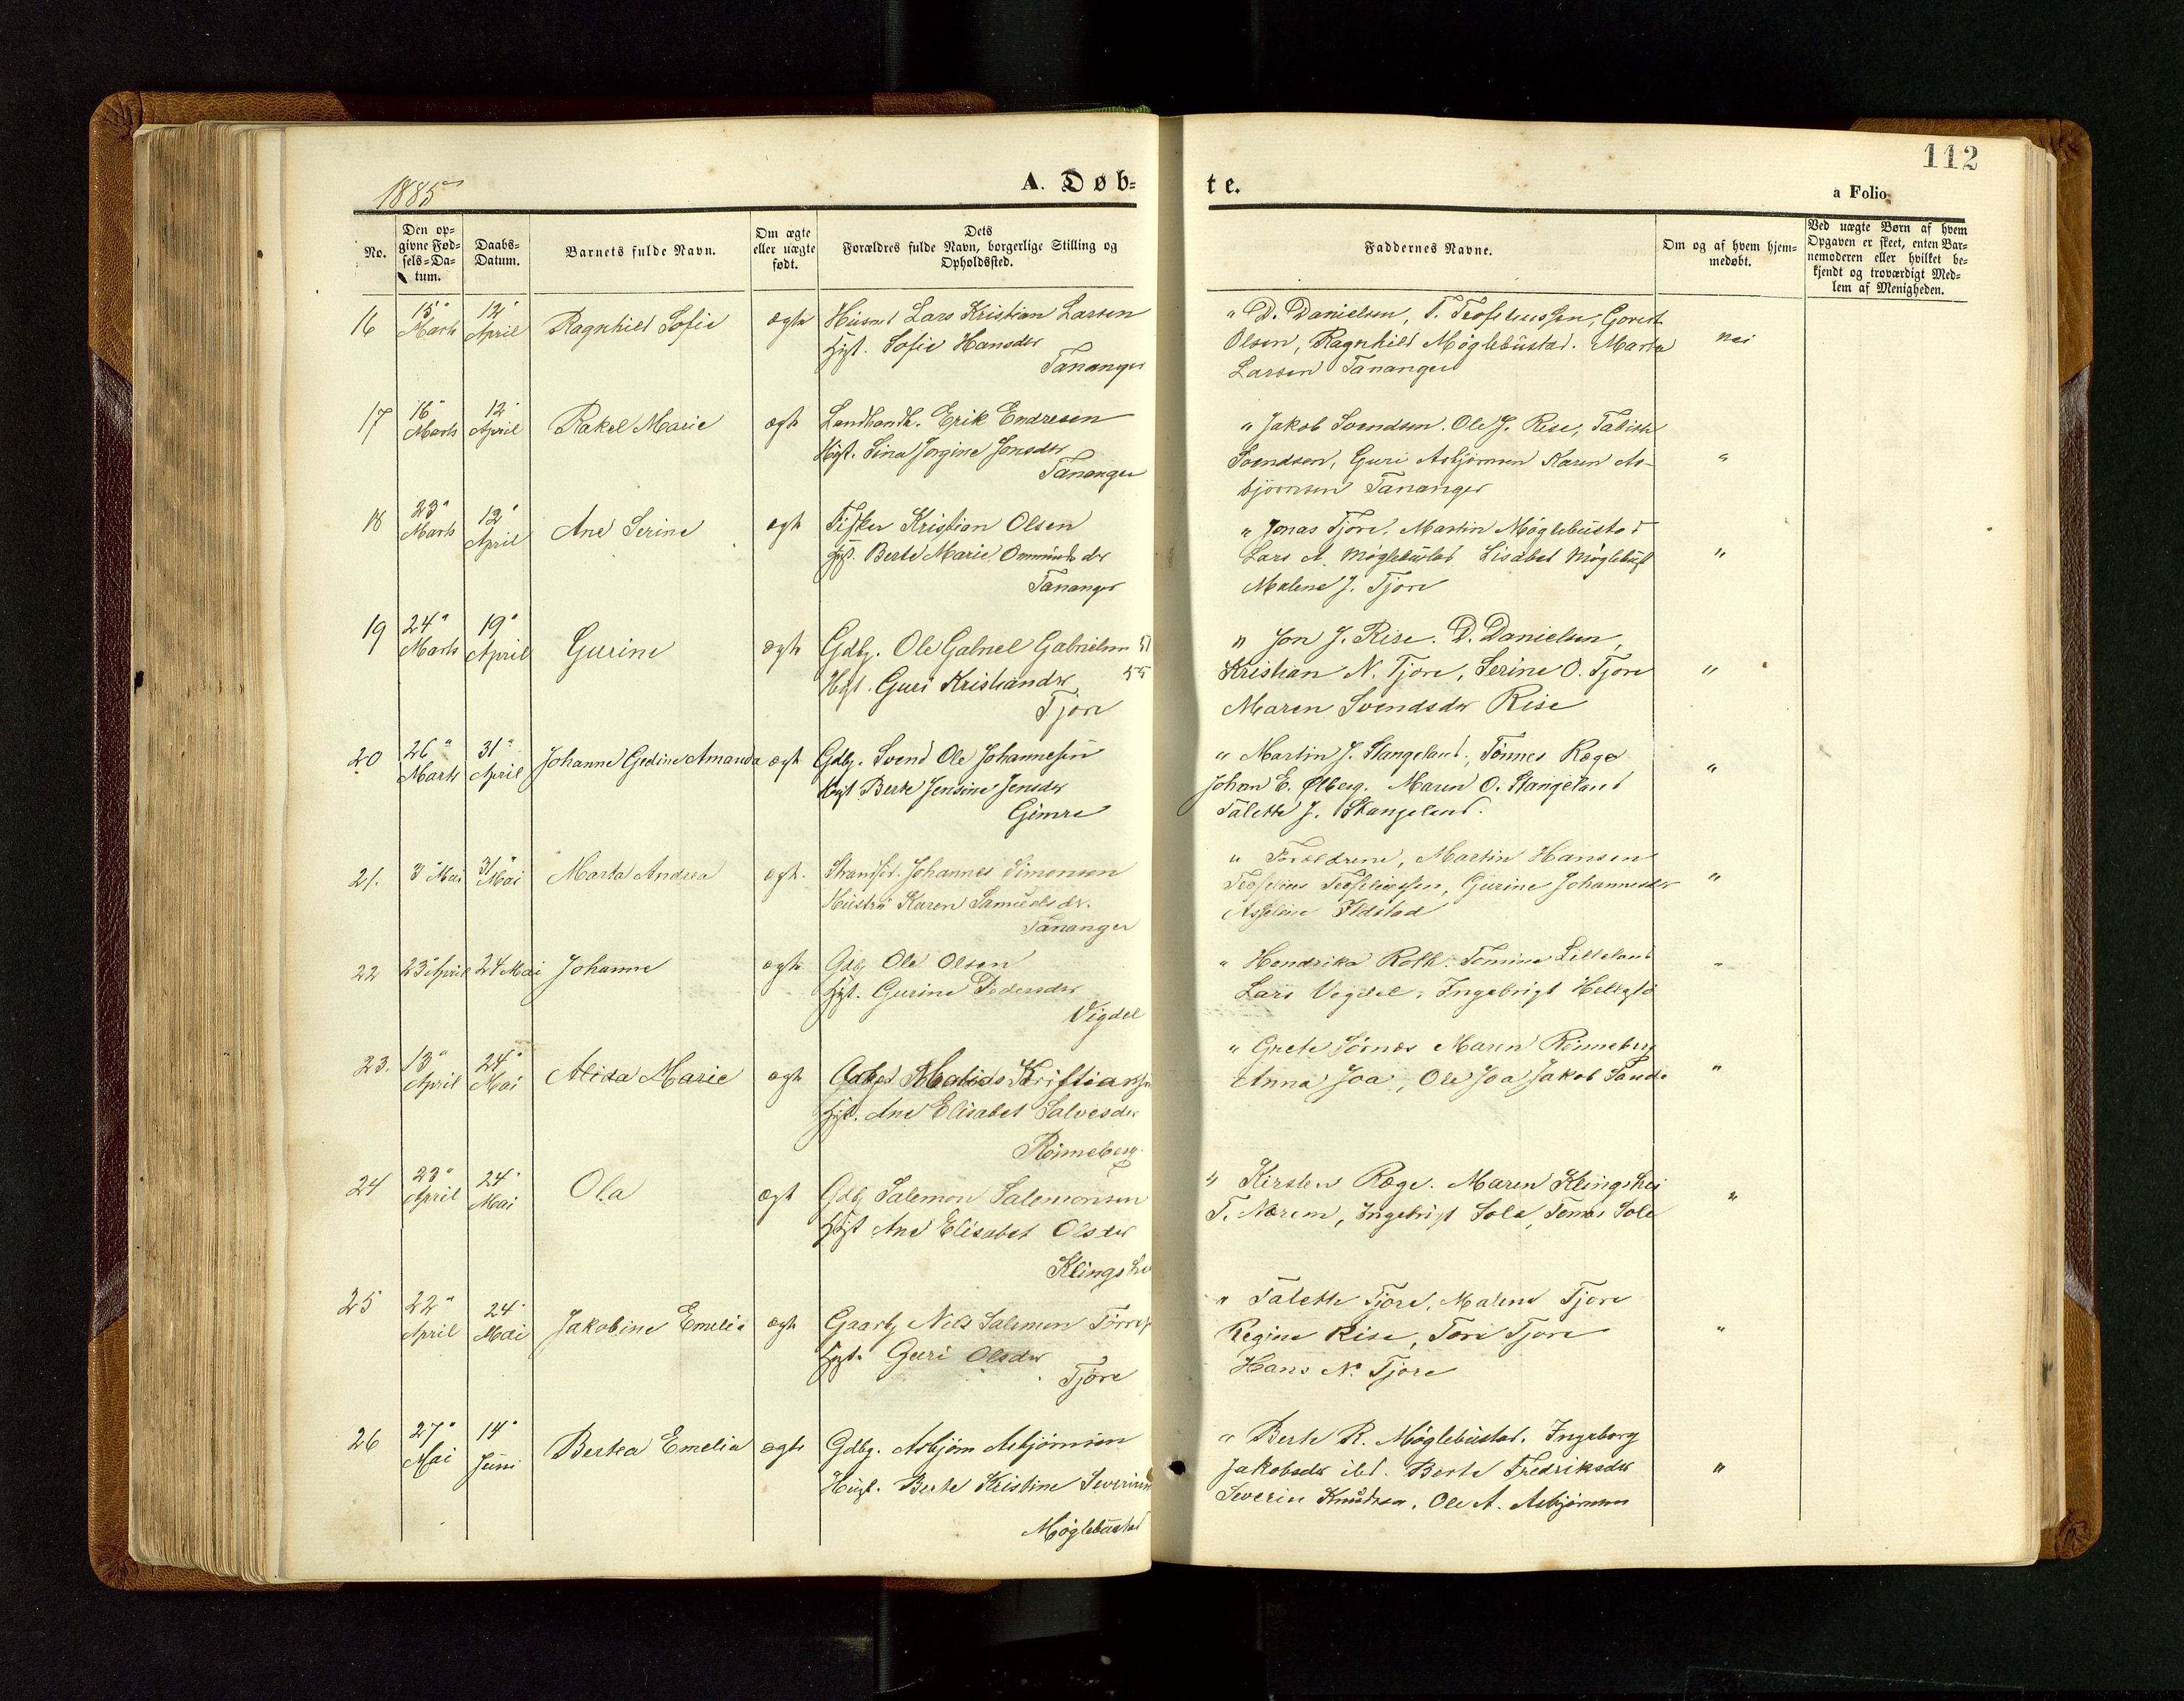 1885
A. Døb-
te.
112
a Folio.
No.
Den op-
givne Fød-
sels-Da-
tum.
Daabs-
Datum.
Barnets fulde Navn.
Om ægte
eller uægte
født.
Dets
Forældres fulde Navn, borgerlige Stilling og
Opholdssted.
Faddernes Navne.
Om og af hvem hjem-
medøbt.
Ved uægte Børn af hvem
Opgaven er skeet, enten Bar-
nemoderen eller hvilket be-
kjendt og troværdigt Med-
lem af Menigheden.
16
15"
Marts
12"
April
Ragnhild Sofie
ægte
Husmd Lars Kristian Larsen
Hgt. Sofie Hansdr
Tananger
" D. Danielsen, T. Teofeliussen, Goret
Olsen, Ragnhild Møglebustad. Marta
Larsen Tananger
nei
17
16"
Marts
12"
April
Rakel Marie
ægte
Landhandl. Erik Endresen
Hgt. Sina Jorgine Jonsdr
Tananger
" Jakob Svendsen. Ole J. Rise, Tabitha
Svendsen, Guri Asbjørnsen Karen As-
bjørnsen Tananger
"
18
23"
Marts
12"
April
Ane Serine
ægte
Fisker Kristian Olsen
Hgt. Berte Marie Ommundsdr
Tananger
" Jonas Tjore, Martin Møglebustad
Lars A. Møglebustad Lisabet Møglebust
Malene J. Tjore
"
19
24"
Marts
19"
April
Gurine
ægte
Gdbg. Ole Gabriel Gabrielsen 51
Hgt. Guri Kristiandr 55
Tjore
" Jon J. Rise. D. Danielsen,
Kristian N. Tjore, Serine O. Tjore
Maren Svendsdr Rise
"
20
26"
Marts
31"
April
Johanne Gedine Amanda
ægt
Gdbg. Svend Ole Johannesen
Hgt Berte Jensine Jensdr
Gimre
" Martin J. Stangeland, Tønnes Ræge
Johan E. Ølberg. Maren O. Stangeland
Talette J. Stangeland.
"
21.
3" Mai
31"
Mai
Marta Andrea
ægt.
Strandsid. Johannes Simonsen
Hustru Karen Samuelsdr.
Tananger
" Forældrene, Martin Hansen
Teofelius Teofeliussen, Gurine Johannesdr
"
22
23" April
24 Mai
Johanne
ægte
Gdbg Ole Olsen
Hgt. Gurine Pedersdr
Vigdel
" Hendrika Roth. Tomine Litleland
Lars Vegdel, Ingebrigt
"
23.
13"
April
24"
Mai
Alida Marie
ægte
Kristiansen
Hgt. Ane Elisabet Salvesdr
Rønneberg
" Grete Sørnes Maren Rønneberg
Anna Joa, Ole Joa Jakob Sande
"
24
23"
April
24"
Mai
Ola
ægt
Gdbg Salemon Salemonsen
Hgt Ane Elisabet Olsdr
Klingshei
" Kirsten Ræge. Maren Klingshei
T. Nærem, Ingebrigt Sola, Tomas Sola
"
25
22"
April
24"
Mai
Jakobine Emelie
ægte
Gaarbg Nils Salemon
Hgt. Guri Olsdr
Tjore
" Talette Tjore, Malene Tjore
Regine Rise, Tore Tjore
Hans N. Tjore
"
26
27"
Mai
14"
Juni
Bertea Emelia
ægte
Gdbg. Asbjørn Asbjørnsen
Hugt. Berte Kristine Severin
Møglebustad
" Berte R. Møglebustad. Ingeborg
Jakobsdr ibd. Berte Fredriksdr
Severin Knudsen, Ole A. Asbjørnsen
"